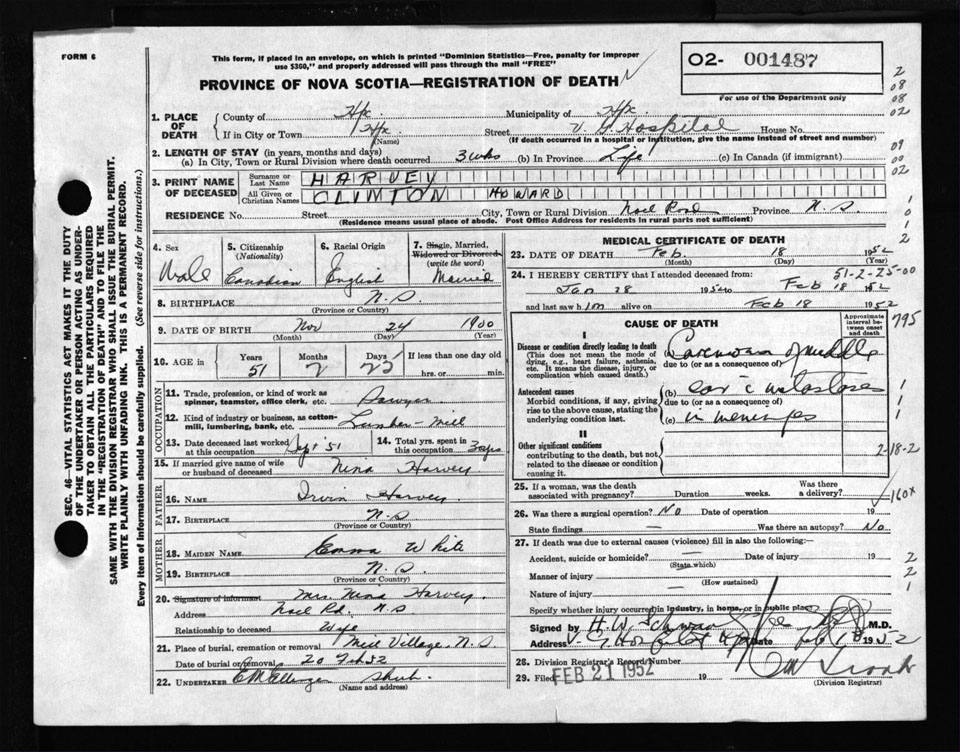 FORM 6
This form, if placed in an envelope, on which is printed "Dominion Statistics—Free, penalty for improper
use $300," and properly addressed will pass through the mail "FREE"
PROVINCE OF NOVA SCOTIA—REGISTRATION OF DEATH
O2- 001487
For use of the Department only
1. PLACE OF DEATH
County of Hfx. Municipality of Hfx.
If in City or Town Hfx. (Name) Street V. G Hospital House No.
(If death occurred in a hospital or institution, give the name instead of street and number)
2. LENGTH OF STAY (in years, months and days)
(a) In City, Town or Rural Division where death occurred 3 wks (b) In Province Life (c) In Canada (if immigrant)
3. PRINT NAME OF DECEASED
Surname or Last Name HARVEY
All Given or Christian Names CLINTON HOWARD
RESIDENCE No. Street City, Town or Rural Division Noel Road Province N.S.
(Residence means usual place of abode. Post Office Address for residents in rural parts not sufficient)
4. Sex Male
5. Citizenship (Nationality) Canadian
6. Racial Origin English
7. Single, Married, Widowed or Divorced (write the word) Married
8. BIRTHPLACE N.S.
(Province or Country)
9. DATE OF BIRTH Nov 24 1900
(Month) (Day) (Year)
10. AGE in Years 51 Months 2 Days 23 If less than one day old
hrs. or min.
OCCUPATION
11. Trade, profession, or kind of work as
spinner, teamster, office clerk, etc. Sawyer
12. Kind of industry or business, as cotton-
mill, lumbering, bank, etc. Lumber-Mill
13. Date deceased last worked at this occupation Sept '51
14. Total yrs. spent in this occupation 30 yrs
15. If married give name of wife
or husband of deceased Nina Harvey
FATHER
16. NAME Irvin Harvey
17. BIRTHPLACE N.S
(Province or Country)
MOTHER
18. MAIDEN NAME Emma White
19. BIRTHPLACE N.S.
(Province or Country)
20. Signature of informant Mrs. Nina Harvey
Address Noel Rd. N.S
Relationship to deceased Wife
21. Place of burial, cremation or removal Mill Village, N.S
Date of burial or removal 20 Feb 52
22. UNDERTAKER
(Name and address)
MEDICAL CERTIFICATE OF DEATH
23. DATE OF DEATH Feb. 18 1952
(Month) (Day) (Year)
51-2-25-00
24. I HEREBY CERTIFY that I attended deceased from
Jan 28 1952 to Feb 18 1952
and last saw him alive on Feb 18 1952
CAUSE OF DEATH
Approximate interval between onset and death
795
I
Disease or condition directly leading to death
(This does not mean the mode of dying, e.g., heart failure, asthenia, etc. It means the disease, injury, or complication which caused death.)
(a) Carcinoma of middle
due to (or as a consequence of)
Antecedent causes
Morbid conditions, if any, giving rise to the above cause, stating the underlying condition last.
(b) ear c metastases
due to (or as a consequence of)
(c) in meninges
II
Other significant conditions
contributing to the death, but not related to the disease or condition causing it.
2-18-2
25. If a woman, was the death associated with pregnancy? Duration weeks. Was there a delivery?
160x
26. Was there a surgical operation? No Date of operation 19
State findings — Was there an autopsy? No
27. If death was due to external causes (violence) fill in also the following:—
Accident, suicide or homicide? — Date of injury 19
(State which)
Manner of injury —
(How sustained)
Nature of injury —
Specify whether injury occurred in industry, in home, or in public place
Signed by M.D.
Address Date Feb 18 1952
28. Division Registrar's Record Number
29. Filed FEB 21 1952 19
(Division Registrar)
SEC. 46—VITAL STATISTICS ACT MAKES IT THE DUTY
OF THE UNDERTAKER OR PERSON ACTING AS UNDER-
TAKER TO OBTAIN ALL THE PARTICULARS REQUIRED
IN THE "REGISTRATION OF DEATH" AND TO FILE THE
SAME WITH THE DIVISION REGISTRAR WHO SHALL ISSUE THE BURIAL PERMIT.
WRITE PLAINLY WITH UNFADING INK. THIS IS A PERMANENT RECORD.
Every item of information should be carefully supplied. (See reverse side for instructions.)
2
08
08
02
09
00
02
1
0
1
2
1
1
1
2
2
1